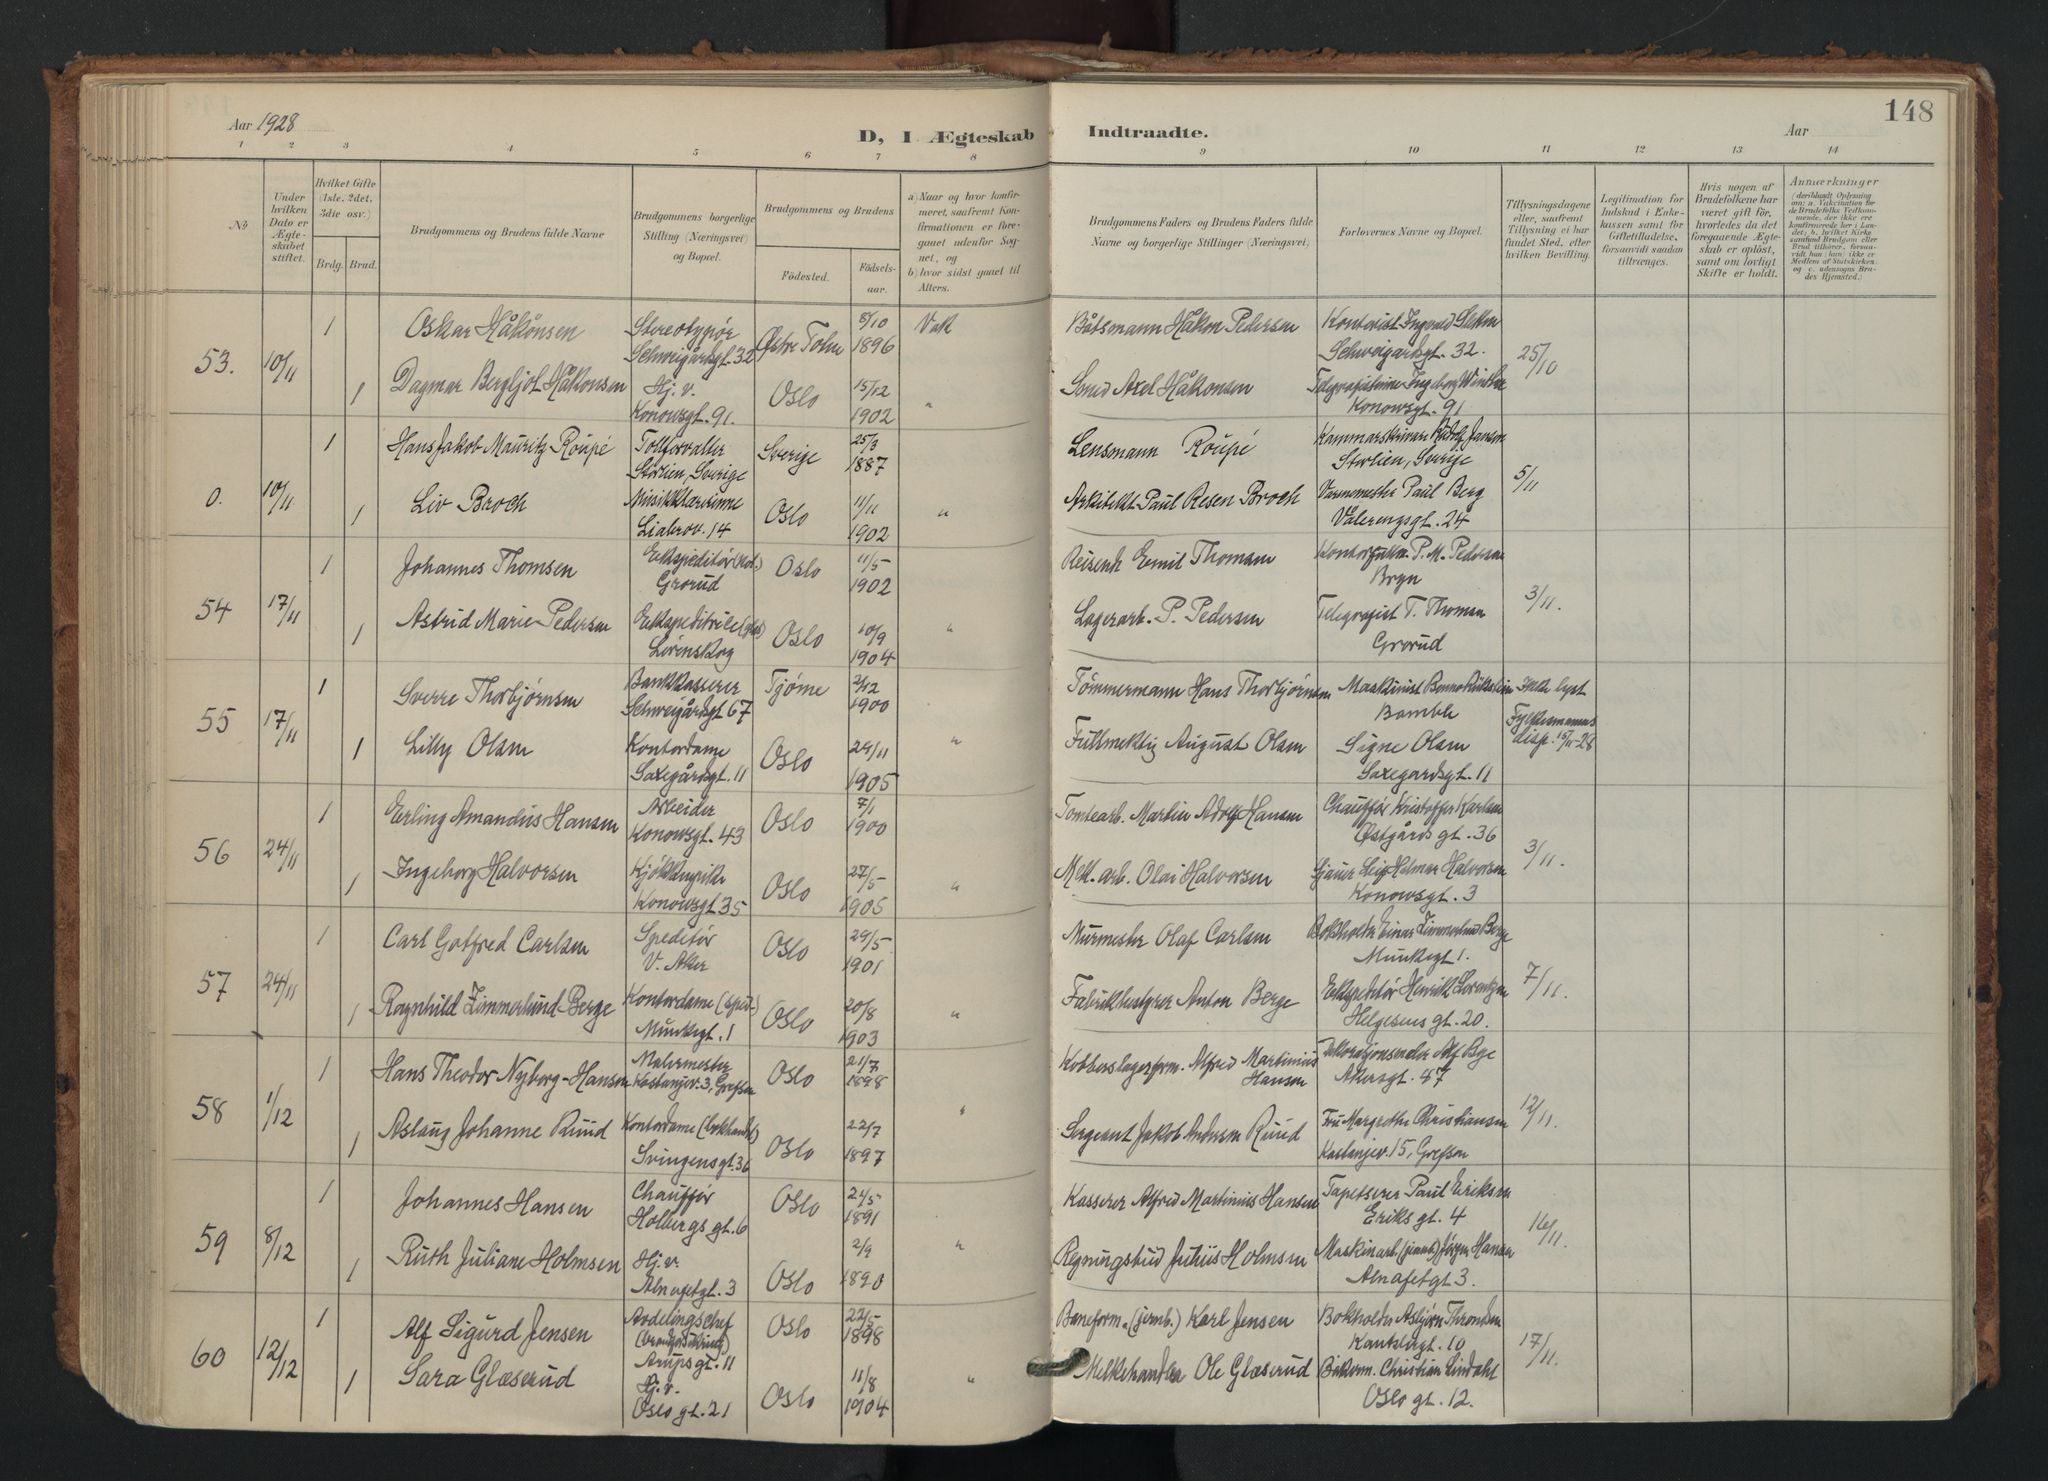 148
Aar 1928
D, I Ægteskab Indtraadte.
Aar
1 2 3 4 5 6 7 8 9 10 11 12 13 14
No
Under hvilken Dato er Ægteskabet stiftet.
Hvilket Gifte (1ste, 2det, 3die osv.)
Brdg. Brud.
Brudgommens og Brudens fulde Navne
Brudgommens borgerlige Stilling (Næringsvei) og Bopæl.
Brudgommens og Brudens
Födested. Födselsaar.
a) Naar og hvor konfirmeret, saafremt Konfirmationen er foregaaet udenfor Sognet, og
b) hvor sidst gaaet til Alters.
Brudgommens Faders og Brudens Faders fulde Navne og borgerlige Stillinger (Næringsvei).
Forlovernes Navne og Bopæl.
Tillysningsdagene eller, saafremt Tillysning ei har fundet Sted, efter hvilken Bevilling.
Legitimation for Indskud i Enkekassen samt för Giftetilladelse, forsaavidt saadan tiltrænges.
Hvis nogen af Brudefolkene har været gift för, hvorledes da det foregaaende Ægteskab er oplöst, samt om lovligt Skifte er holdt.
Anmærkninger
53. 10/11
1 Oskar Håkonsen Stereotypør Schweigårdsgt. 32 Østre Tolm 8/10 1896 Vak Båtsmann Håkon Pedersen Kontorist Ingvald Sletten Schweigardsgt. 32. 25/10
1 Dagmar Bergljot Håkonsen Hj. v. Konowsgt. 91. Oslo 15/12 1902 " Smed Axel Håkonsen Telegrafistinne Ingeborg Winther Konowsgt. 91
0. 10/11
1 Hans Jakob Mauritz Roupé Tollforvalter Storlien, Sverige Sverige 25/3 1887 Lensmann Roupé Kammarskrivare Rudolf Janson Storlien, Sverige 5/11
1 Liv Broch Musikklærerinne Liabrov. 14 Oslo 11/11 1902 " Arkitekt Paul Resen Broch Varmemester Paul Berg Vålerengsgt. 24
54 17/11
1 Johannes Thomsen Ekspeditør Grorud Oslo 11/5 1902 Reisende Emil Thomsen Kontorfullm. P. M. Pedersen Bryn 3/11.
1 Astrid Marie Pedersen Ekspeditrice Lørenskog Oslo 10/9 1904 " Lagerarb. P. Pedersen Telegrafist T. Thomsen Grorud
55 17/11
1 Sverre Thorbjørnsen Bankkasserer Schweigårdsgt 67 Tjøme 2/12 1900 Tømmermann Hans Thorbjørnsen Maskinist Bamble Ikke lyst
1 Lilly Olsen Kontordame Saxegårdsgt. 11 Oslo 29/11 1905 " Fullmektig August Olsen Signe Olsen Saxegardsgt. 11 Fylkesmannens disp. 15/11-28
56 24/11
1 Erling Amandus Hansen Arbeider Konowsgt. 43 Oslo 7/1 1900 Tomtearb. Martin Adolf Hansen Chauffør Kristoffer Karlsen Østgårds gt. 36 3/11.
1 Ingeborg Halvorsen Kjøkkenpike Konowsgt. 35 Oslo 27/5 1905 " Mek. arb. Olai Halvorsen Sjauer Helmer Halvorsen Konowsgt. 3
57 24/11
1 Carl Gotfred Carlsen Speditør V. Aker Oslo 29/5 1901 Murmester Olaf Carlsen Bokholder Einar Zimmerlund Berge Munkegt 1. 7/11.
1 Ragnhild Zimmerlund-Berge Kontordame (sped.) Munkegt. 1 Oslo 20/8 1903 " Fabrikkbestyrer Anton Berge Ekspeditør Henrik Lorentzen Helgesens gt. 20.
58 1/12
1 Hans Theodor Nyborg-Hansen Malermester Kastanjev. 3, Grefsen Oslo 21/7 1898 Kobberslagerform. Alfred Martinius Hansen Alf Bye Akersgt. 47 12/11.
1 Aslaug Johanne Ruud Kontordame (bokhandl) Svingensgt. 36 Oslo 22/7 1897 " Sergeant Jakob Andersen Ruud Fru Margrethe Christiansen Kastanjev. 15, Grefsen
59 8/12
1 Johannes Hansen Chauffør Holbergs gt. 6 Oslo 24/5 1891 Kasserer Alfred Martinius Hansen Tapetserer Paul Eriksen Eriks gt. 4 16/11.
1 Ruth Juliane Holmsen Hj. v. Alnafetgt. 3 Oslo 2/9 1890 " Regningsbud Julius Holmsen Maskinarb. (jernb.) Jørgen Hansen Alnafetgt 3.
60 12/12
1 Alf Sigurd Jensen Avdelingschef Arupsgt. 11 Oslo 22/5 1898 Baneform. (jernb.) Karl Jensen Bokholder Asbjørn Throndsen Kantslergt. 10 17/11.
1 Sara Glæserud Hj. v. Oslo gt. 21 Oslo 11/8 1904 " Melkehandler Ole Glæserud Christian Lindahl Oslo gt. 12.